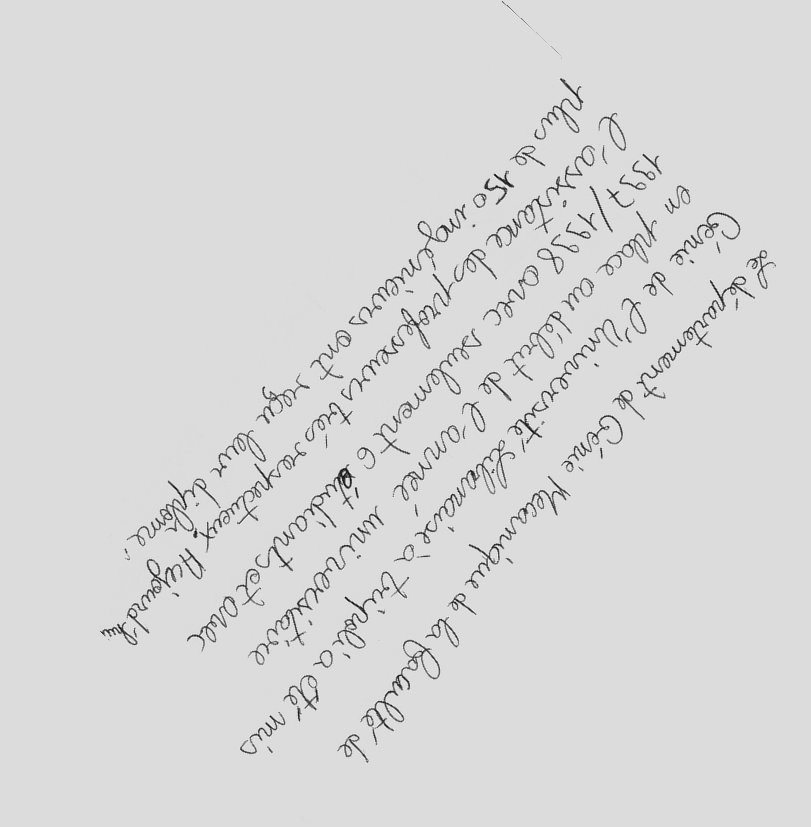 Le département de Génie Mecanique de la faculté de
Génie de l'Université Libanaise à tripoli a été mis
en place au début de l'année universitaire
1997/1998 avec seulement 6 étudiants et avec
l'assistance des professeurs très respectueux. Aujourd'hui
plus de 150 ingénieurs ont reçu leur diplôme.